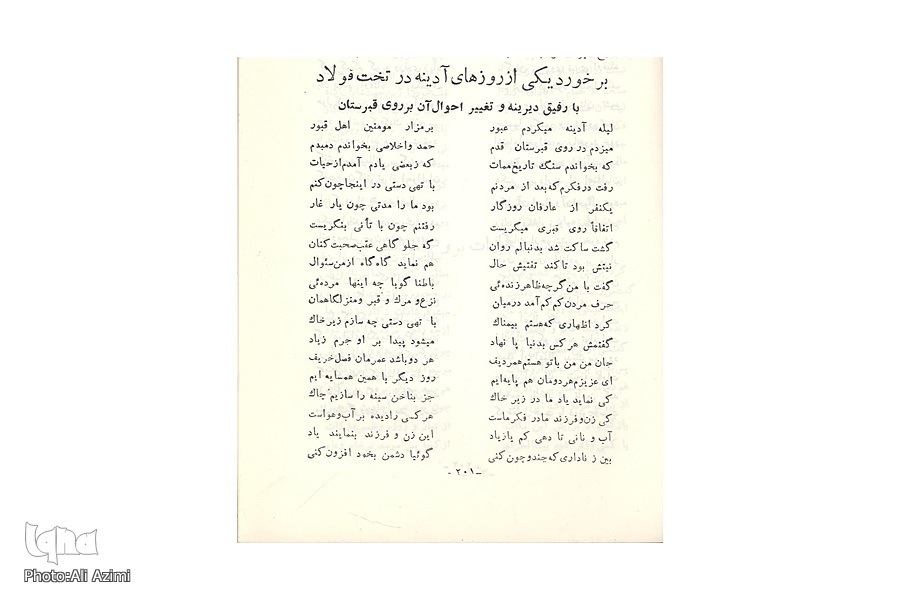 برخورد یکی از روزهای آدینه در تخت فولاد
با رفیق دیرینه و تغییر احوال آن بر روی قبرستان
لیله آدینه میکردم عبور برمزار مومنین اهل قبور
میزدم در روی قبرستان قدم حمد واخلاصی بخواندم دمبدم
که بخواندم سنگ تاریخ ممات که زبعضی یادم آمدم ازحیات
رفت درفکرم که بعد از مردنم با تهی دستی در اینجا چون کنم
یکنفر از عارفان روزگار بود ما را مدتی چون یار غار
اتفاقاً روی قبری میگریست رفتنم چون با تأنی بنگریست
گشت ساکت شد بدنبالم روان گه جلو گاهی عقب صحبت کنان
نیتش بود تا کند تفتیش حال هم نماید گاه گاه ازمن سئوال
گفت با من گرچه ظاهر زنده‌ئی باطنا گویا چه اینها مرده‌ئی
حرف مردن کم کم آمد درمیان نزع و مرگ و قبر ومنزلگاهمان
کرد اظهاری که هستم بیمناک با تهی دستی چه سازم زیر خاک
گفتمش هرکس بدنیا پا نهاد میشود پیدا بر او جرم زیاد
جان من من باتو هستم همردیف هر دو باشد عمرمان فصل خریف
ای عزیزم هردومان هم پایه‌ایم روز دیگر با همین همسایه ایم
کی نماید یاد ما در زیر خاک جز بناخن سینه را سازیم چاک
کی زن و فرزند مادر فکر ماست هرکسی رادیده بر آب وهواست
آب و نانی تا دهی کم یازیاد این زن و فرزند بنمایند یاد
بین ز ناداری که چند و چون کنی گوئیا دشمن بخود افزون کنی
ـ۲۰۱ـ
iqna
Photo:Ali Azimi